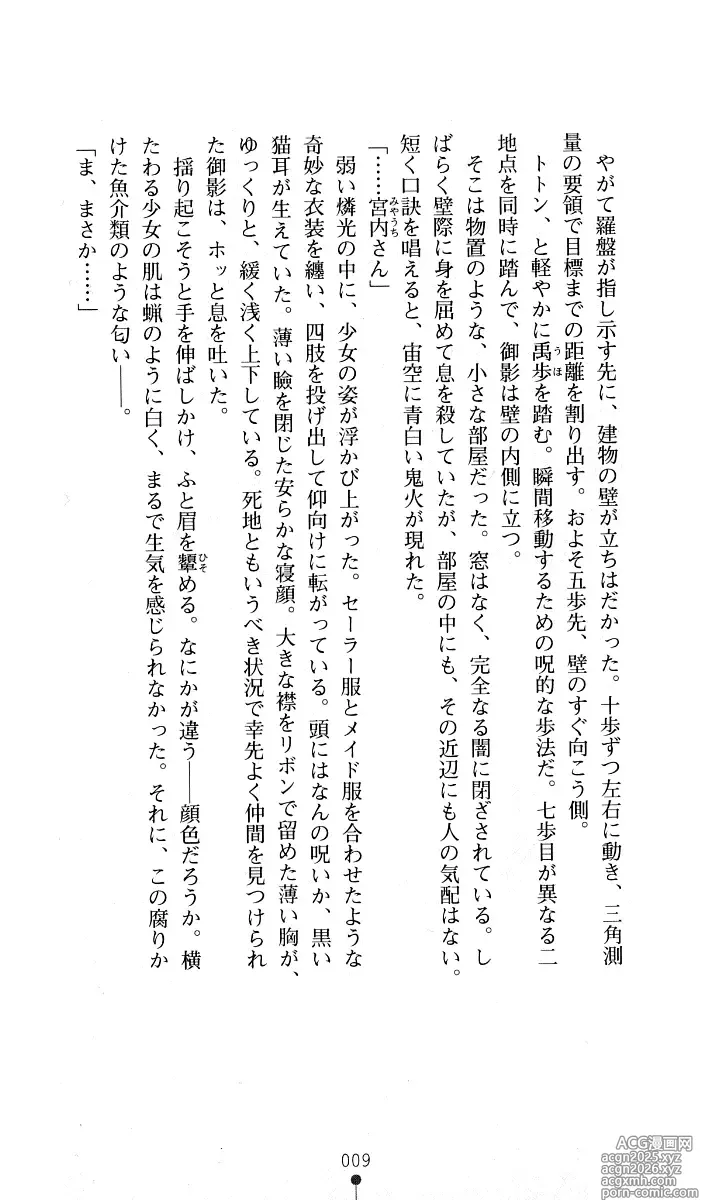 やがて羅盤が指し示す先に、建物の壁が立ちはだかった。十歩ずつ左右に動き、三角測
量の要領で目標までの距離を割り出す。およそ五歩先、壁のすぐ向こう側。
トトン、と軽やかに禹歩を踏む。瞬間移動するための呪的な歩法だ。七歩目が異なる二
うほ
地点を同時に踏んで、御影は壁の内側に立つ。
そこは物置のような、小さな部屋だった。窓はなく、完全なる闇に閉ざされている。し
ばらく壁際に身を屈めて息を殺していたが、部屋の中にも、その近辺にも人の気配はない。
短く口訣を唱えると、宙空に青白い鬼火が現れた。
「……宮内さん」
みやうち
弱い燐光の中に、少女の姿が浮かび上がった。セーラー服とメイド服を合わせたような
奇妙な衣装を纏い、四肢を投げ出して仰向けに転がっている。頭にはなんの呪いか、黒い
猫耳が生えていた。薄い瞼を閉じた安らかな寝顔。大きな襟をリボンで留めた薄い胸が、
ゆっくりと、緩く浅く上下している。死地ともいうべき状況で幸先よく仲間を見つけられ
た御影は、ホッと息を吐いた。
揺り起こそうと手を伸ばしかけ、ふと眉を顰める。なにかが違う――顔色だろうか。横
ひそ
たわる少女の肌は蝋のように白く、まるで生気を感じられなかった。それに、この腐りか
けた魚介類のような匂い――。
「ま、まさか……」
009
ACG漫画网
acgn2025.xyz
acgn2026.xyz
acgxmh.com
poin-comic.com